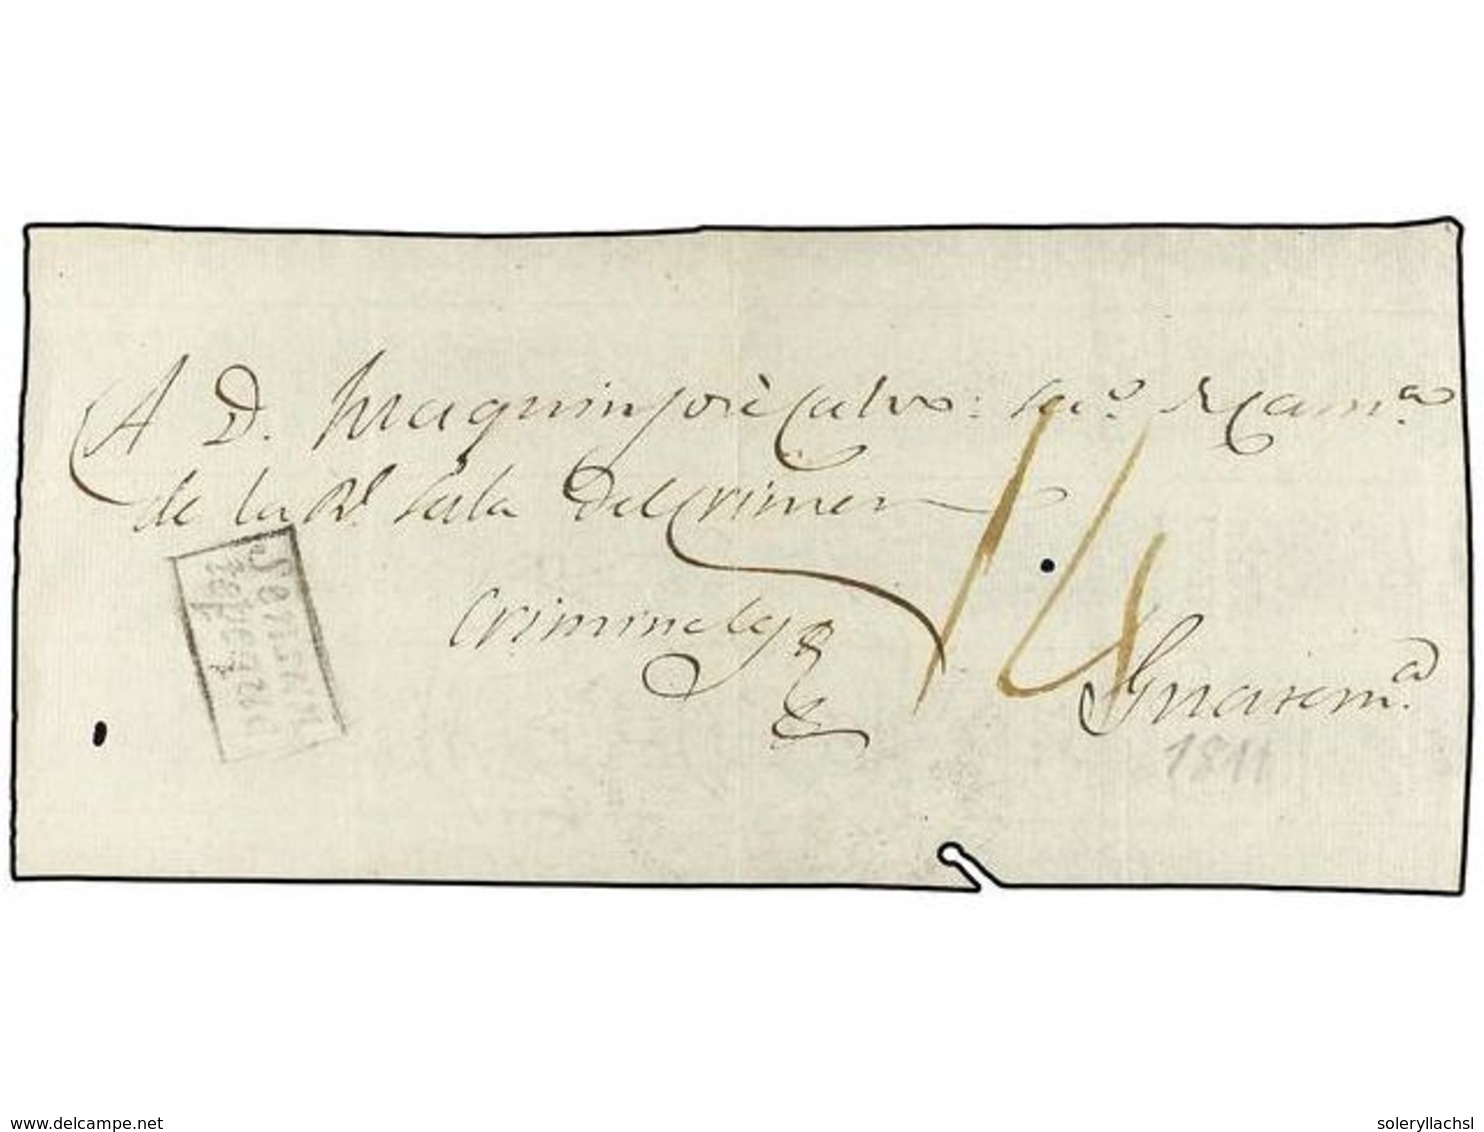 A D. Juaquin José Calvo: Sno. de Cama.
de la Rl. Sala del Crimen
14
Criminal y
Guatema.
1811
www.delcampe.net
soleryllachsl